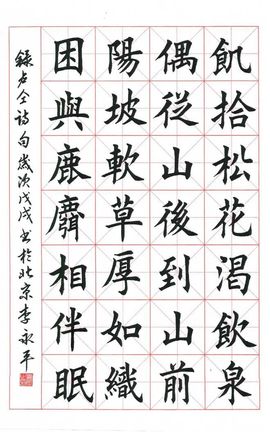 飢拾松花渴飲泉
偶從山後到山前
陽坡軟草厚如織
困與鹿麛相伴眠
錄卢仝詩句歲次戊戌书於北京李永平